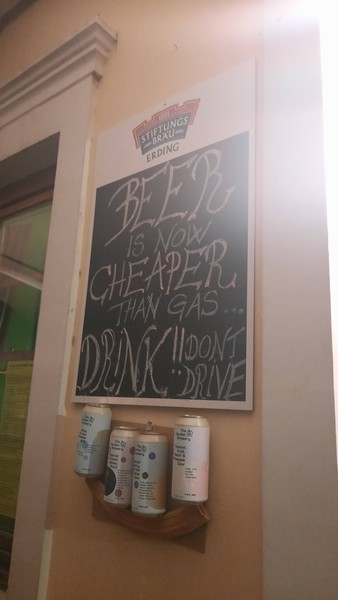 STIFTUNGS
BRÄU
ERDING
BEER
IS NOW
CHEAPER
THAN GAS...
DRINK!! DONT
DRIVE